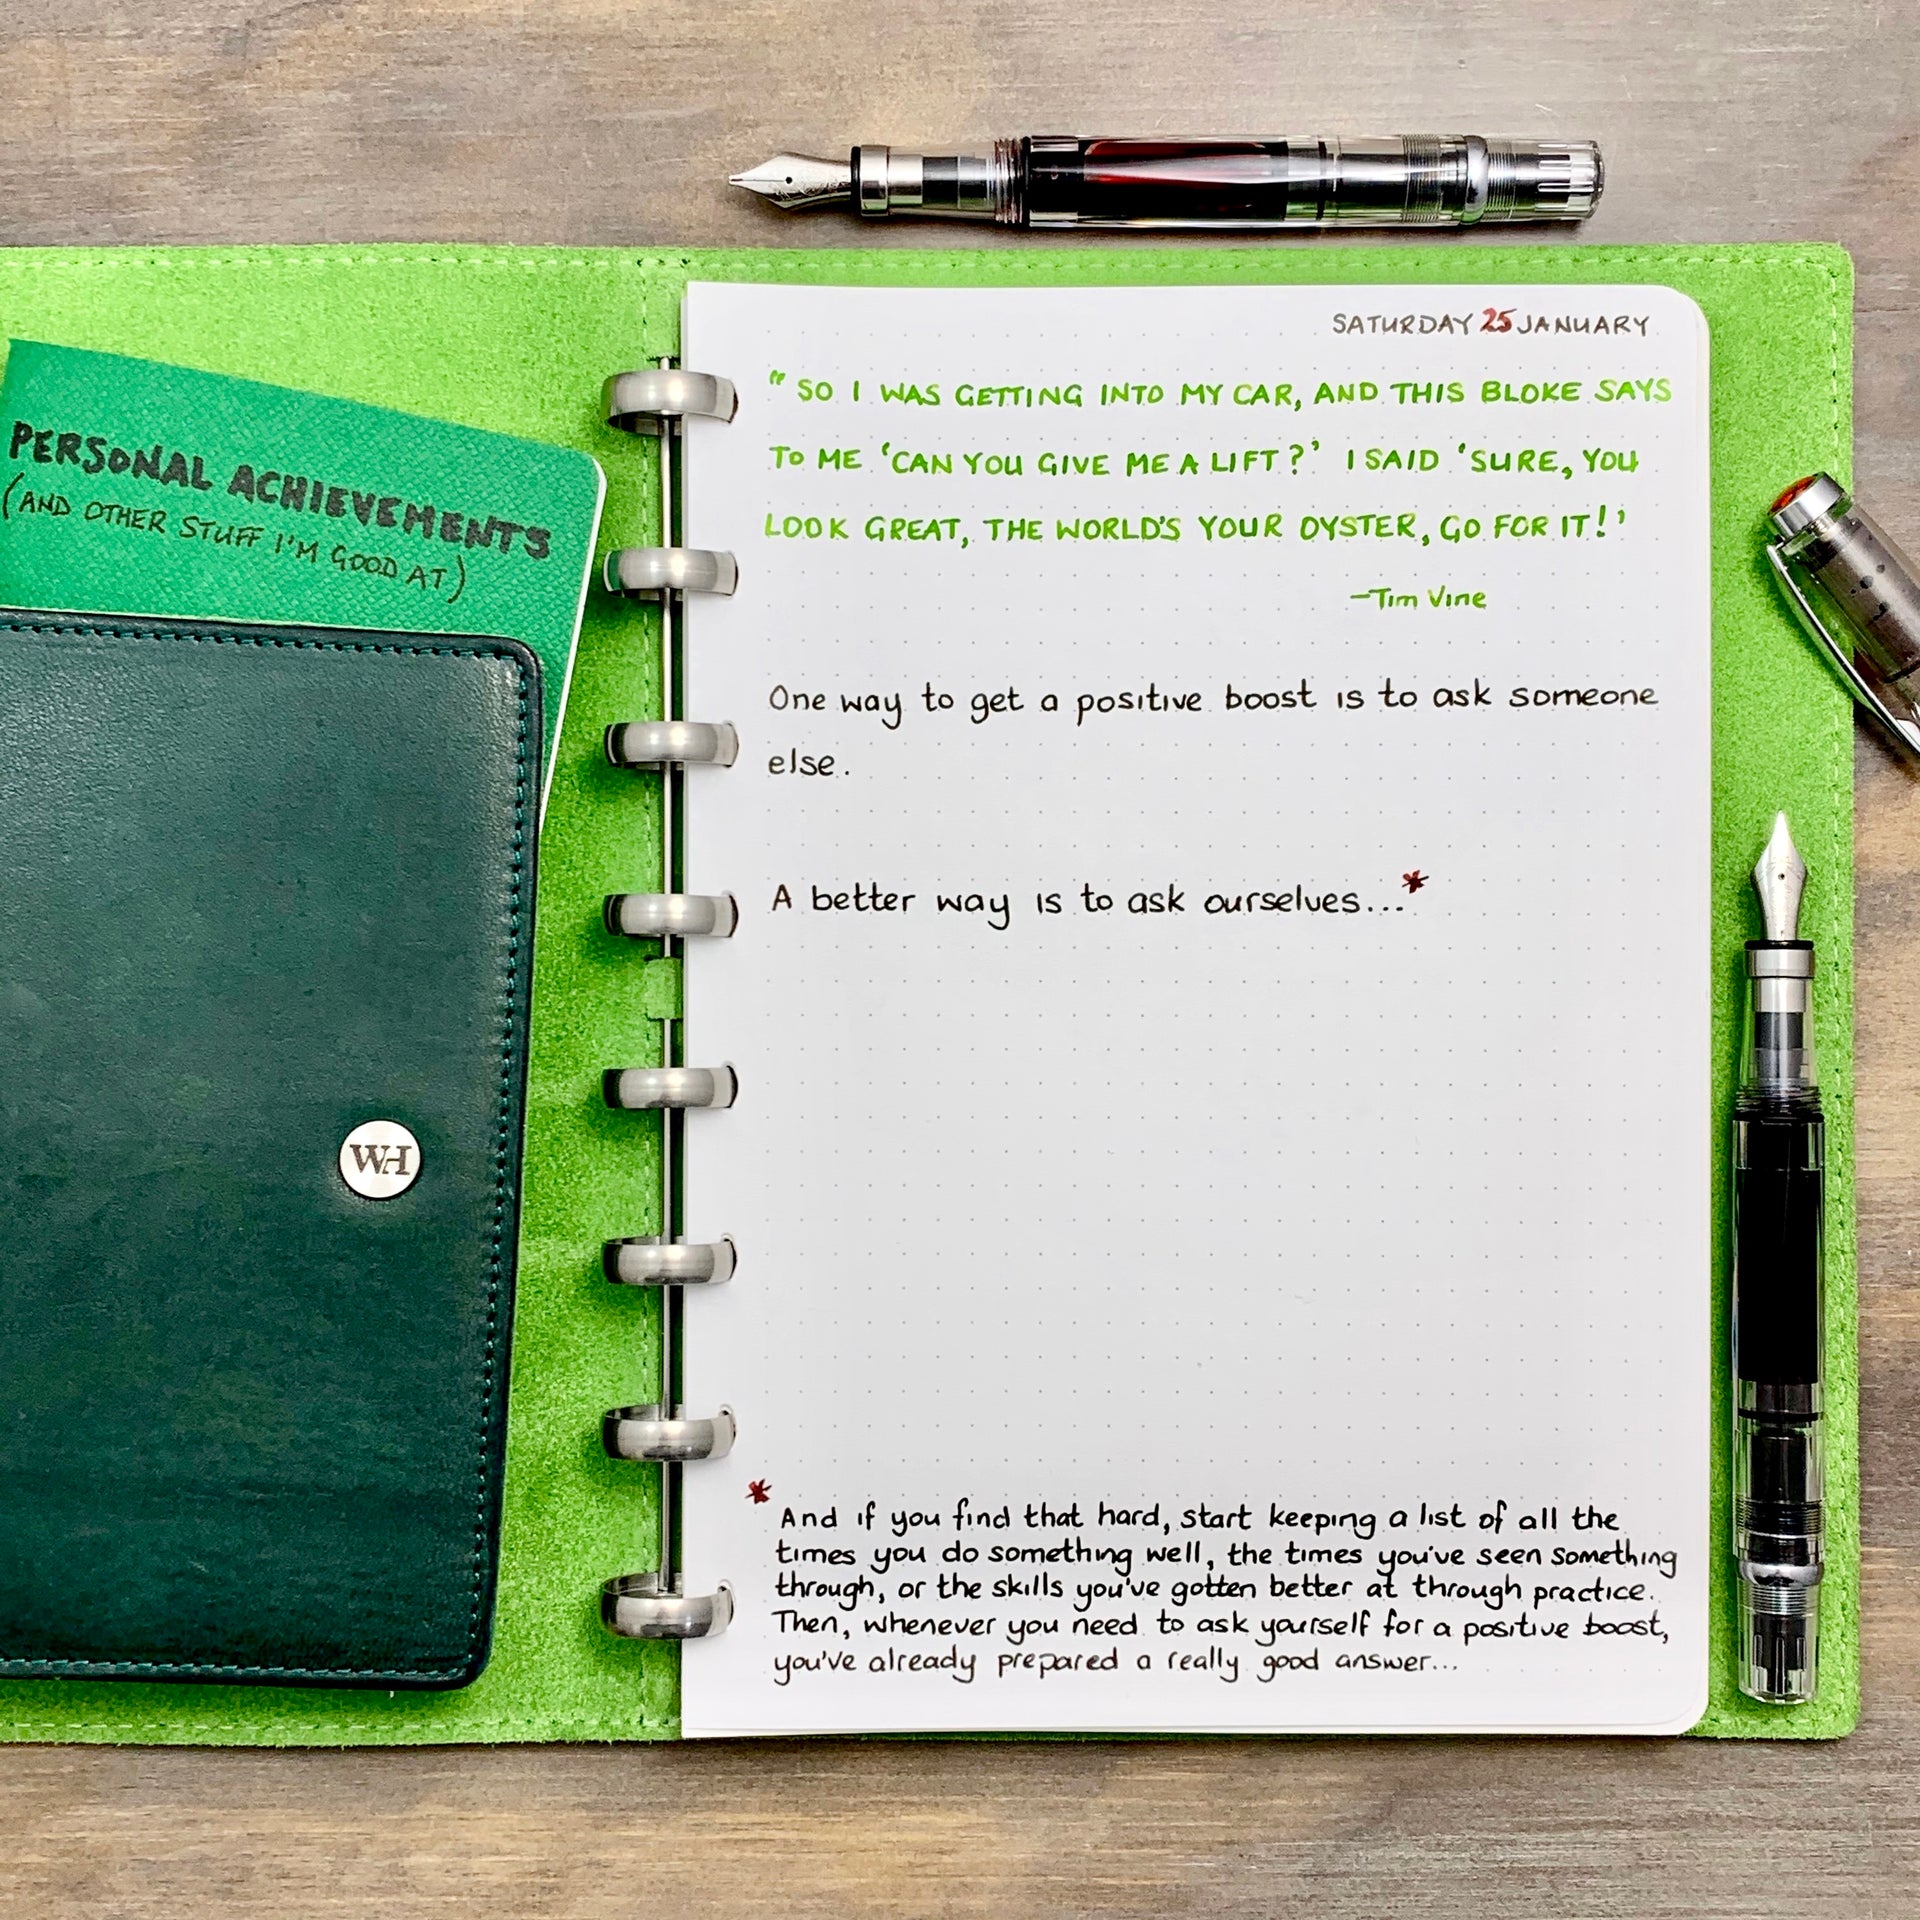 PERSONAL ACHIEVEMENTS
(AND OTHER STUFF I'M GOOD AT)
WH
SATURDAY 25 JANUARY
"SO I WAS GETTING INTO MY CAR, AND THIS BLOKE SAYS
TO ME 'CAN YOU GIVE ME A LIFT?' I SAID 'SURE, YOU
LOOK GREAT, THE WORLD'S YOUR OYSTER, GO FOR IT!'
–Tim Vine
One way to get a positive boost is to ask someone
else.
A better way is to ask ourselves...*
* And if you find that hard, start keeping a list of all the
times you do something well, the times you've seen something
through, or the skills you've gotten better at through practice.
Then, whenever you need to ask yourself for a positive boost,
you've already prepared a really good answer...